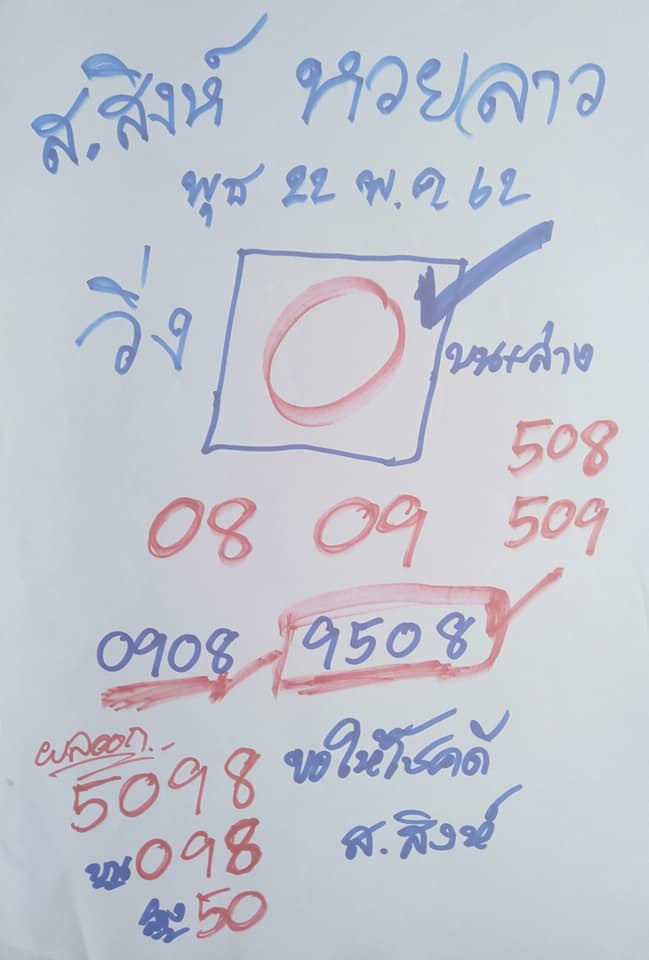 ส.สิงห์ หวยลาว
พุธ 22 พ.ค 62
วิ่ง 0 บน+ล่าง
508
08 09 509
0908 9508
ผลออก..
5098 ขอให้โชคดี
บน 098 ส.สิงห์
ล่าง 50